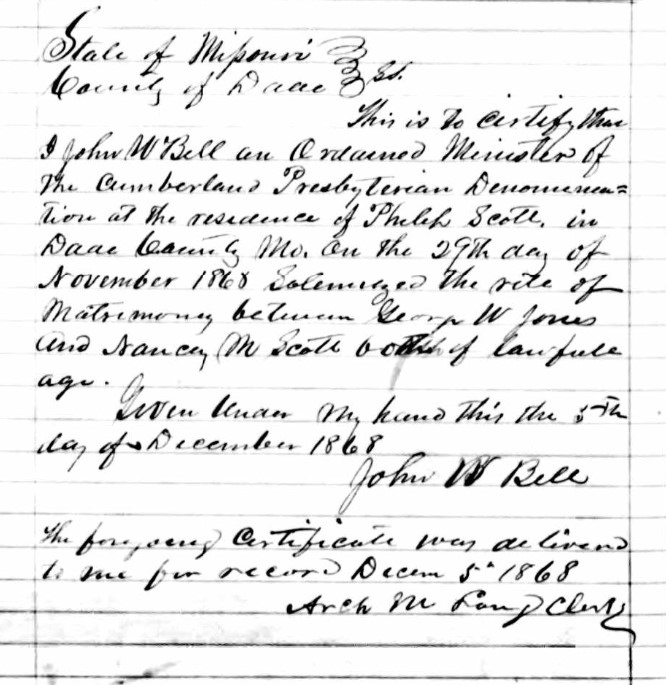 State of Missouri
County of Dade } ss.
This is to certify that
I John W Bell an Ordained Minister of
the Cumberland Presbyterian Denomina=
tion at the residence of Philip Scott, in
Dade County Mo. On the 29th day of
November 1868 Solemnized the rite of
Matrimony between George W Jones
and Nancy M Scott both of lawfull
age.
Given Under My hand this the 5th
day of December 1868
John W Bell
The foregoing Certificate was deliverd
to me for record Decem 5" 1868
Arch M Long Clerk